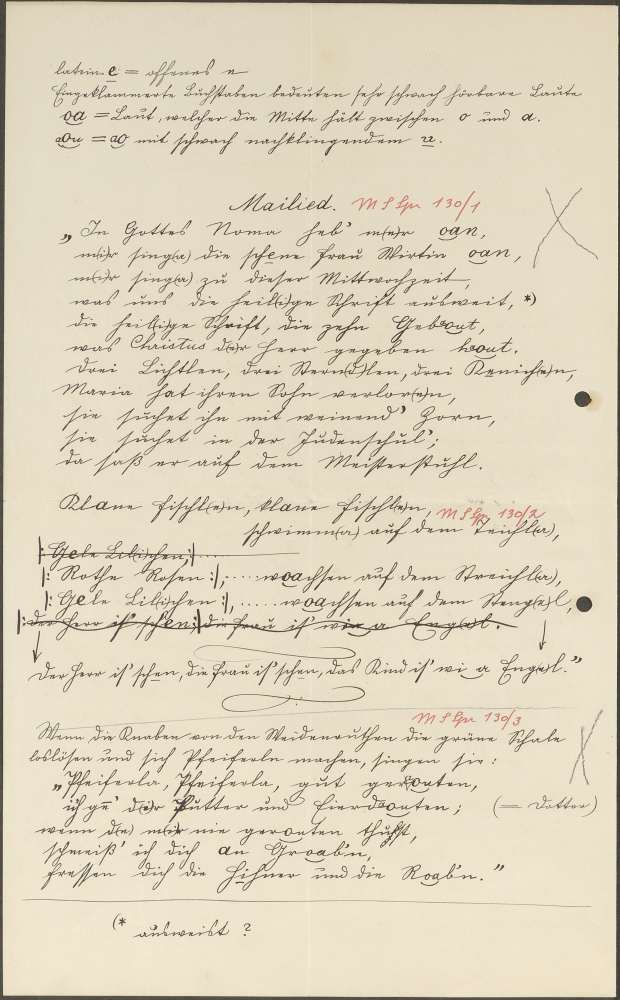 latein. e = offenes e
Eingeklammerte Buchstaben bedeuten sehr schwach hörbare Laute
oa = Laut, welcher die Mitte hält zwischen o und a.
aOu = ao mit schwach nachklingendem u.
Mailied. M S Spr 130/1
„In Gottes Noma heb' m(e)r oan,
m(i)r sing(a) die schene Frau Wirtin oan,
m(i)r sing(a) zu dieser Mittwochzeit,
was uns die heil(i)ge Schrift ausweit, *)
die heil(i)ge Schrift, die zehn Gebout,
was Christus d(e)r Herr gegeben hout.
Drei Lichtlen, drei Stern(d)len, drei Kenich(e)n,
Maria hat ihren Sohn verlor(e)n,
sie suchet ihn mit weinend' Zorn,
sie suchet in der Judenschul';
da saß er auf dem Meisterstuhl.
Klane Fischl(e)n, klane Fischl(e)n, M S Spr 130/2
schwimm(a) auf dem Teichl(a),
|: Gele Lili(s)chen, :| ....
|: Rothe Rosen :|, .... woachsen auf dem Streichl(a),
|: Gele Lili(s)chen :|, ..... woachsen auf dem Steng(e)l,
|: Der Herr is' schen, :| die Frau is' wie a Eng(e)l.
Der Herr is' schen, die Frau is' schen, das Kind is' wi a Eng(e)l.“
M S Spr 130/3
Wenn die Knaben von den Weidenruthen die grüne Schale
loslösen und sich Pfeiferln machen, singen sie:
„Pfeiferla, Pfeiferla, gut geroaten,
ich ge' d(i)r Putter und Eierdoaten; (= Dotter)
wenn d(e) m(i)r nie geroaten thust,
schmeiß' ich dich an Groab'n,
fressen dich die Hihner und die Roab'n.“
(* ausweist ?